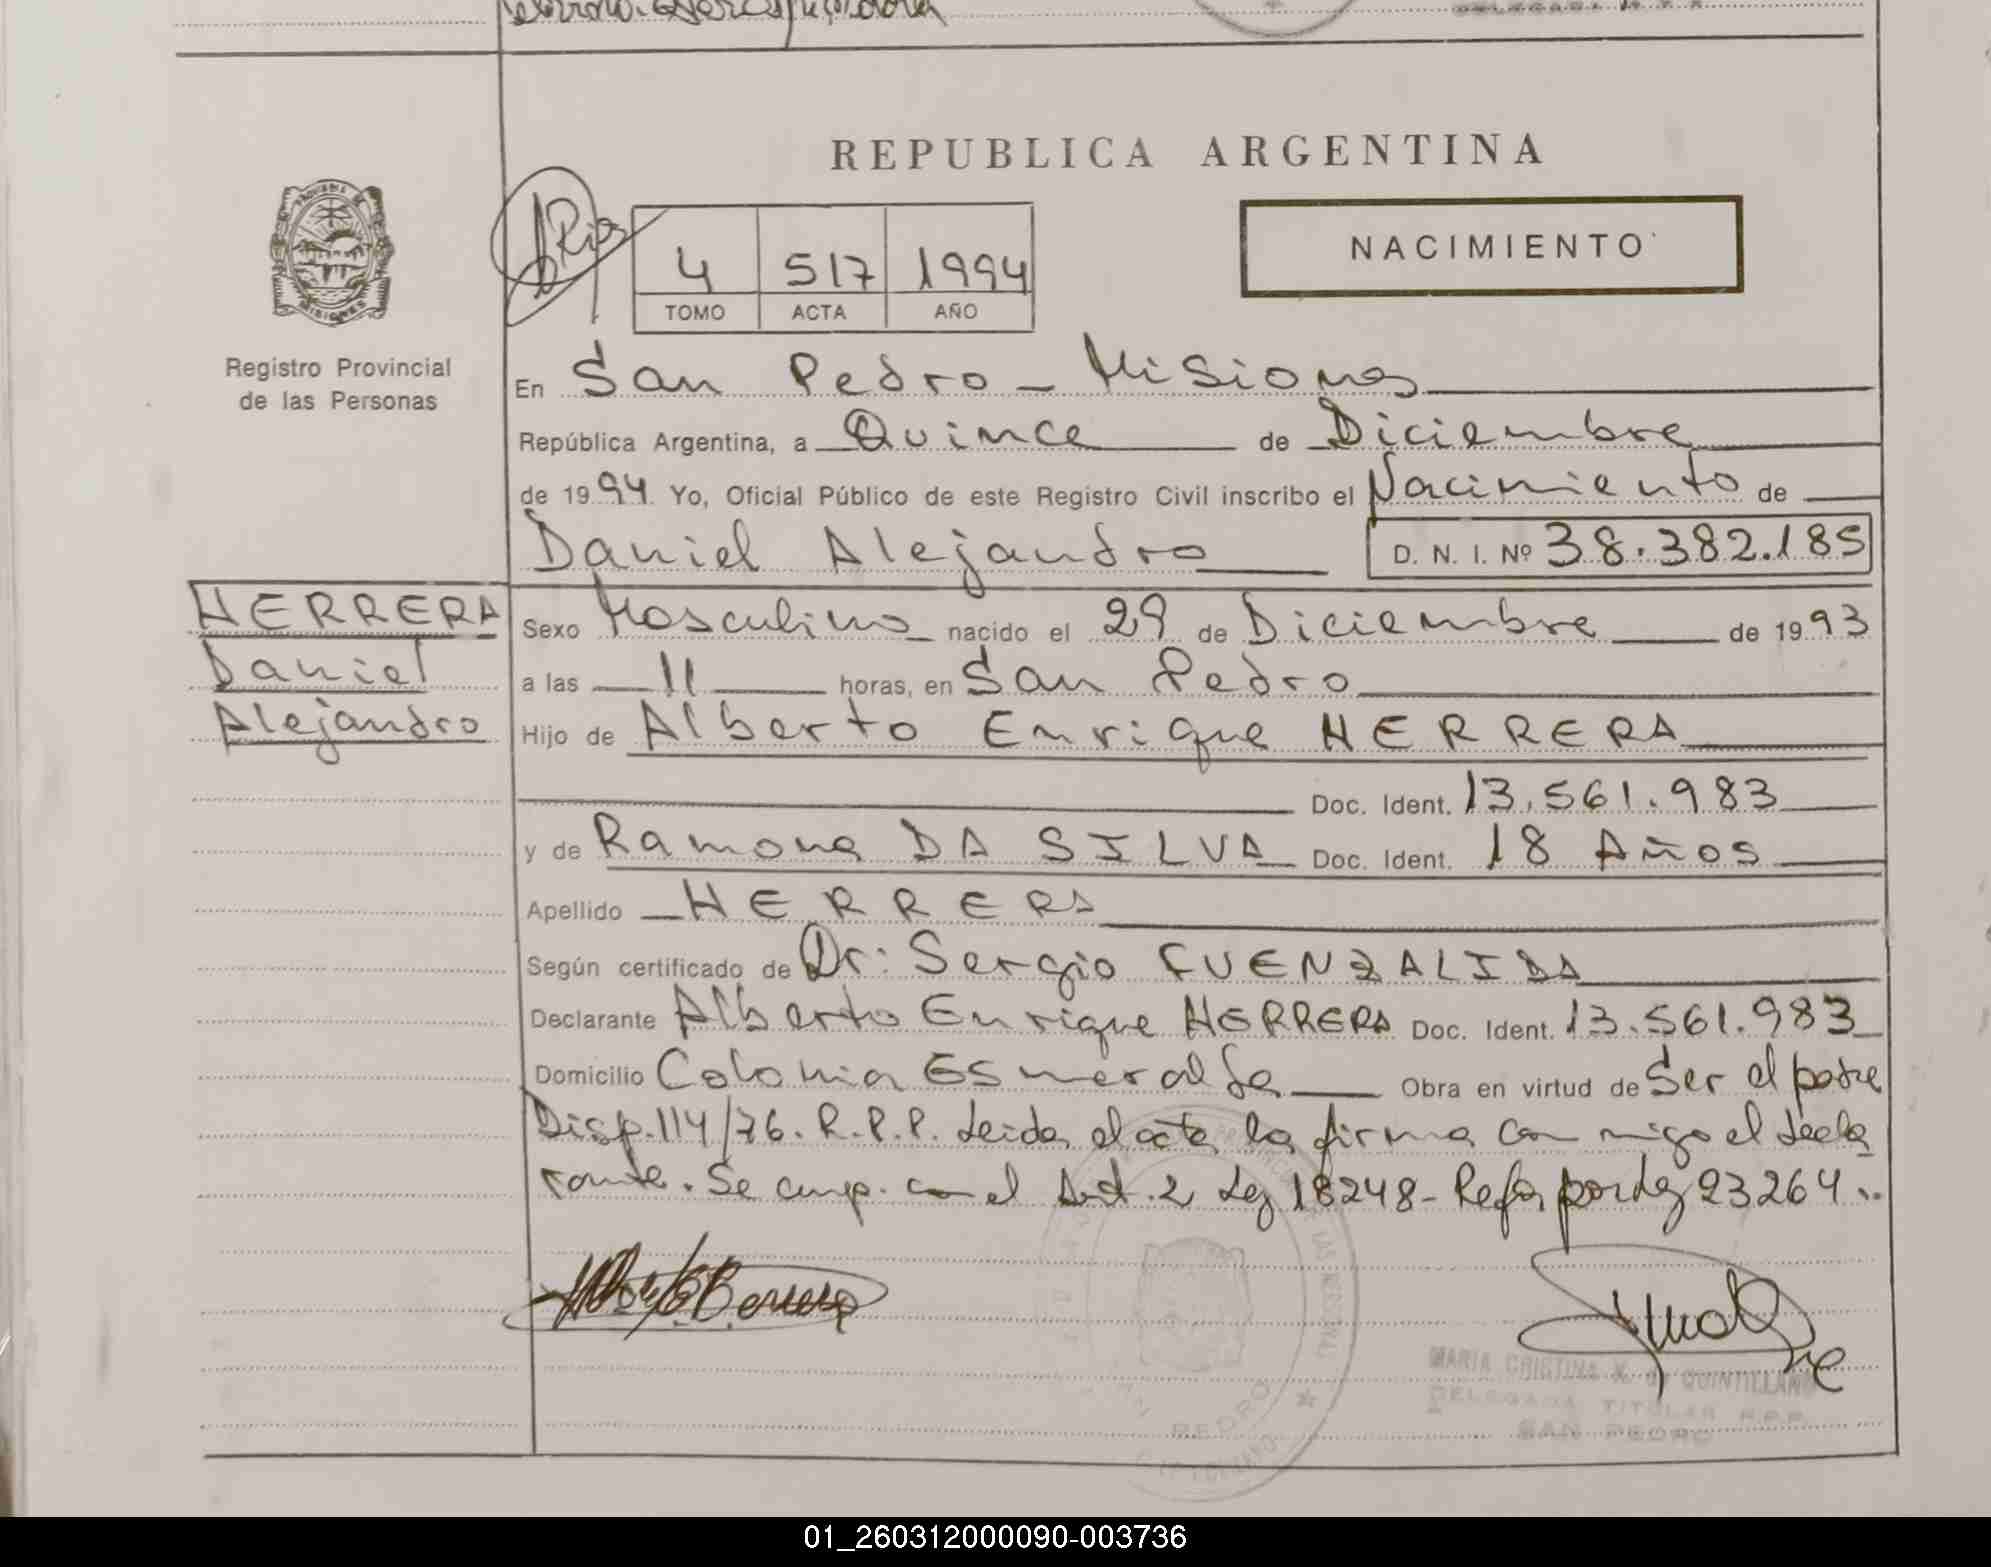 REPUBLICA ARGENTINA
NACIMIENTO
4 517 1994
TOMO ACTA AÑO
Registro Provincial
de las Personas
En San Pedro - Misiones
República Argentina, a Quince de Diciembre
de 1994 Yo, Oficial Público de este Registro Civil inscribo el Nacimiento de
Daniel Alejandro D. N. I. Nº 38.382.185
HERRERA
Daniel
Alejandro
Sexo Masculino nacido el 29 de Diciembre de 1993
a las 11 horas, en San Pedro
Hijo de Alberto Enrique HERRERA
Doc. Ident. 13.561.983
y de Ramona DA SILVA Doc. Ident. 18 Años
Apellido HERRERA
Según certificado de Dr: Sergio FUENZALIDA
Declarante Alberto Enrique HERRERA Doc. Ident. 13.561.983
Domicilio Colonia Esmeralda Obra en virtud de Ser el padre
Disp. 114/76. R.P.P. Leida el acta la firma con migo el decla
rante. Se cump. con el Art. 2 Ley 18248 - Refo, por Ley 23264..
MARIA CRISTINA K. de QUINTILLANO
DELEGADA TITULAR R.P.P.
SAN PEDRO
01_260312000090-003736